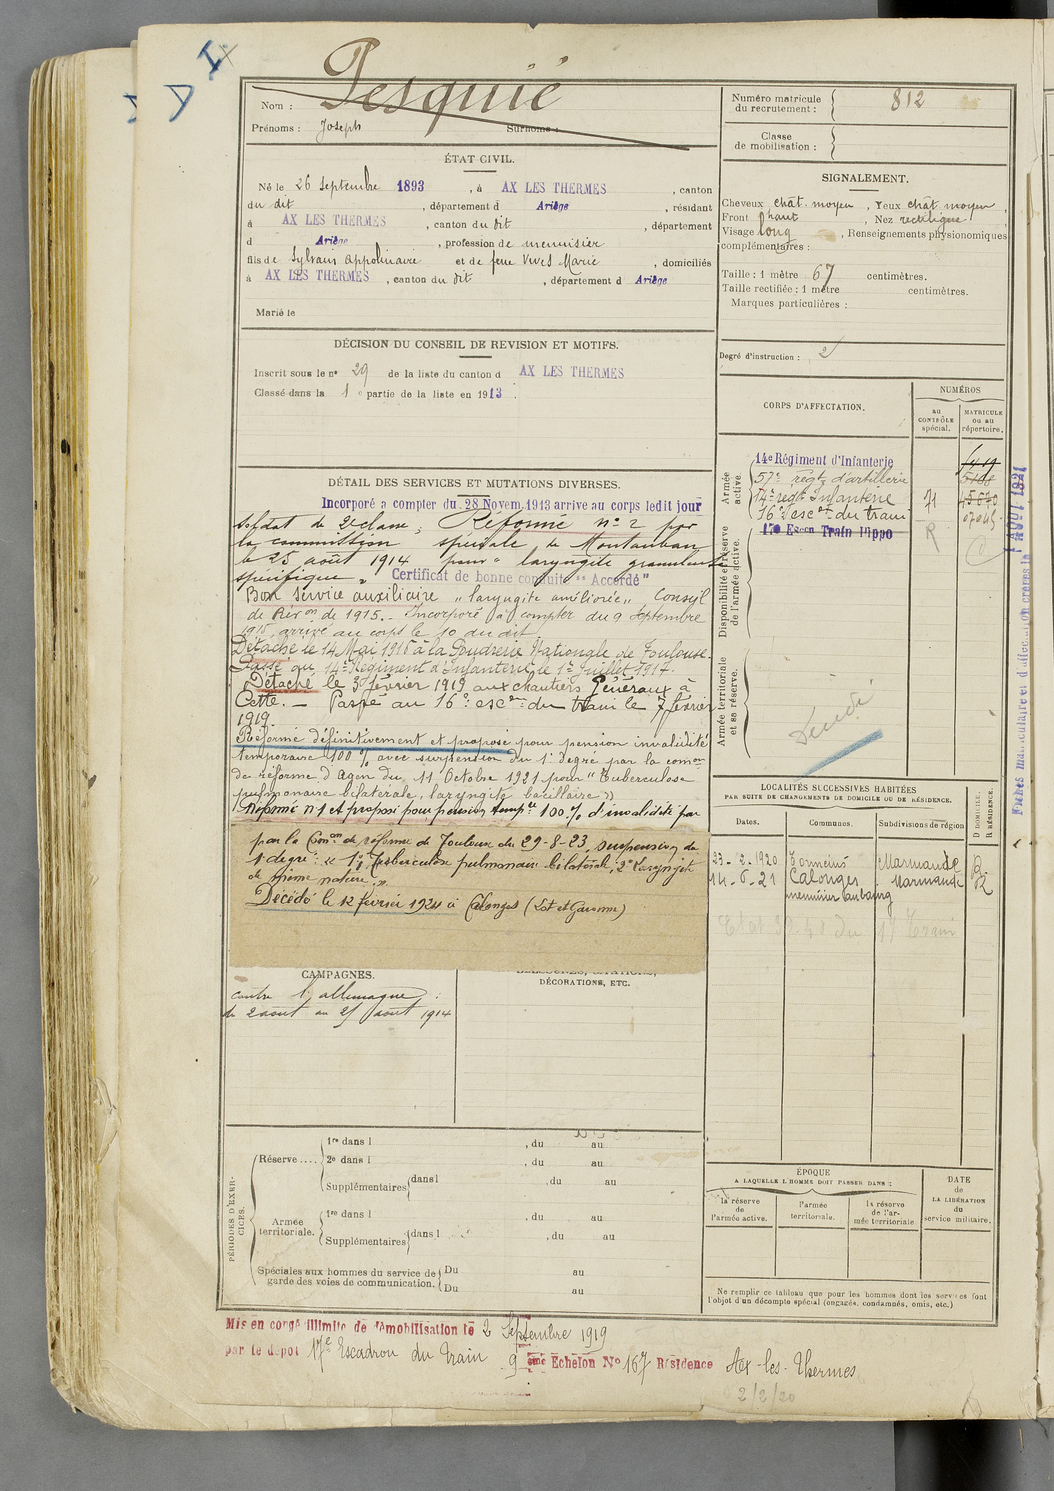 Nom : Pesquié
Prénoms : Joseph Surnoms :
Numéro matricule du recrutement : 812
Classe de mobilisation :
ÉTAT CIVIL.
Né le 26 Septembre 1893, à AX LES THERMES, canton
du dit, département d Ariège, résidant
à AX LES THERMES, canton du dit, département
d Ariège, profession de menuisier
fils de Sylvain Appolinaire et de feue Vives Marie, domiciliés
à AX LES THERMES, canton du dit, département d Ariège
Marié le
SIGNALEMENT.
Cheveux chât. moyen, Yeux chât. moyen,
Front haut, Nez rectiligne,
Visage long, Renseignements physionomiques
complémentaires :
Taille : 1 mètre 67 centimètres.
Taille rectifiée : 1 mètre centimètres.
Marques particulières :
Degré d'instruction : 2
DÉCISION DU CONSEIL DE REVISION ET MOTIFS.
Inscrit sous le nº 29 de la liste du canton d AX LES THERMES
Classé dans la 1e partie de la liste en 1913.
DÉTAIL DES SERVICES ET MUTATIONS DIVERSES.
Incorporé a compter du 28 Novem. 1913 arrive au corps ledit jour
soldat de 2e classe; Réformé nº 2 par
la commission spéciale de Montauban
le 25 août 1914 pour "laryngite granuleuse
spécifique" Certificat de bonne conduite "Accordé"
Bon service auxiliaire "laryngite améliorée" Conseil
de Rév.on de 1915. - Incorporé à compter du 9 Septembre
1915, arrivé au corps le 10 du dit.
Détaché le 14 Mai 1916 à la Poudrerie Nationale de Toulouse.
Passé au 14e Régiment d'Infanterie le 1er Juillet 1917.
Détaché le 3 février 1919 aux chantiers Généraux à
Cette. - Passé au 16e esc.on du train le 7 février
1919.
Réformé définitivement et proposé pour pension invalidité
temporaire 100% avec suspension du 1er degré par la com.on
de réforme d'Agen du 11 Octobre 1921 pour "Tuberculose
pulmonaire bilatérale, laryngite bacillaire")
Réformé n1 et proposé pour pension temp.re 100% d'invalidité par
par la Com.on de réforme de Toulouse du 29-8-23, suspension du
1er degré: "1º, Tuberculose pulmonaire bilatérale; 2º Laryngite
de même nature."
Décédé le 12 février 1924 à Calonges (Lot et Garonne)
CORPS D'AFFECTATION.
NUMÉROS
au CONTRÔLE spécial.
MATRICULE ou au répertoire.
Armée active.
14e Régiment d'Infanterie
57e régt d'artillerie
14e régt Infanterie
16e esc.on du train
17e Escon Train Hippo
71
R
Disponibilité et réserve de l'armée active.
Armée territoriale et sa réserve.
Décédé
LOCALITÉS SUCCESSIVES HABITÉES
PAR SUITE DE CHANGEMENTS DE DOMICILE OU DE RÉSIDENCE.
Dates. Communes. Subdivisions de région
D DOMICILE. R RÉSIDENCE.
23-2-1920 Tonneins Marmande R
14-6-21 Calonges Marmande R
menuisier au bourg
CAMPAGNES.
contre l'allemagne :
du 2 août au 25 août 1914
BLESSURES, CITATIONS,
DÉCORATIONS, ETC.
PÉRIODES D'EXERCICES.
Réserve.... 1re dans l , du au
2e dans l , du au
Supplémentaires dans l , du au
Armée territoriale. 1re dans l , du au
Supplémentaires dans l , du au
Spéciales aux hommes du service de garde des voies de communication. Du au
Du au
ÉPOQUE
A LAQUELLE L'HOMME DOIT PASSER DANS :
la réserve de l'armée active.
l'armée territoriale.
la réserve de l'armée territoriale.
DATE de LA LIBÉRATION du service militaire.
Ne remplir ce tableau que pour les hommes dont les services font
l'objet d'un décompte spécial (engagés, condamnés, omis, etc.)
Mis en congé illimité de démobilisation le 2 Septembre 1919
par le dépot 17e Escadron du Train 9ème Echelon Nº 167 Résidence Ax-les-Thermes
2/2/20